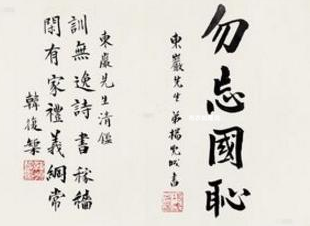 勿忘國恥
東巖先生 弟楊兆
書
東巖先生清鑑
訓無逸詩書稼穡
閑有家禮義綱常
韓復榘